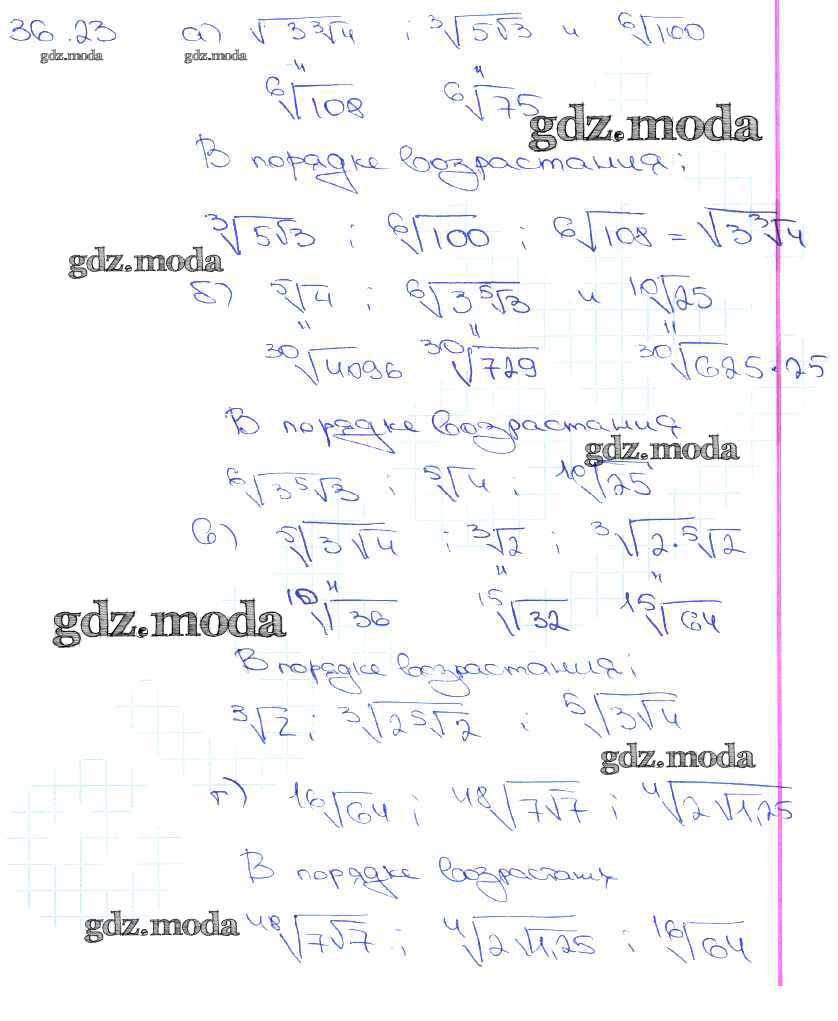 36.23 а) √(3∛4) ; ∛(5√3) и ⁶√100
gdz.moda gdz.moda
" "
⁶√108 ⁶√75
gdz.moda
В порядке возрастания:
∛(5√3) ; ⁶√100 ; ⁶√108 = √(3∛4)
gdz.moda
б) ⁵√4 ; ⁶√(3⁵√3) и ¹⁰√25
" " "
³⁰√4096 ³⁰√729 ³⁰√625·25
В порядке возрастания
gdz.moda
⁶√(3⁵√3) ; ⁵√4 ; ¹⁰√25
в) ⁵√(3√4) ; ∛2 ; ∛(2·⁵√2)
" " "
¹⁰√36 ¹⁵√32 ¹⁵√64
gdz.moda
В порядке возрастания:
∛2 ; ∛(2⁵√2) ; ⁵√(3√4)
gdz.moda
г) ¹⁶√64 ; ⁴⁸√(7√7) ; ⁴√(2√1,25)
В порядке
gdz.moda
⁴⁸√(7√7) ; ⁴√(2√1,25) ; ¹⁶√64